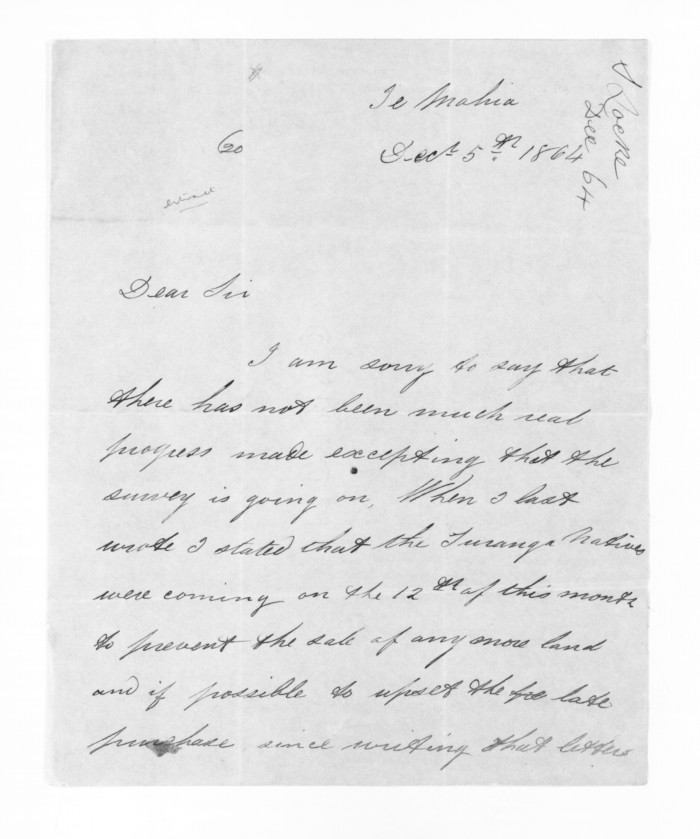 S Locke
Dec 64
Te Mahia
Decr 5th 1864
60
extract
Dear Sir
I am sorry to say that
there has not been much real
progress made excepting that the
survey is going on, When I last
wrote I stated that the Turanga Natives
were coming on the 12th of this month
to prevent the sale of any more land
and if possible to upset the late
purchase since writing that letter